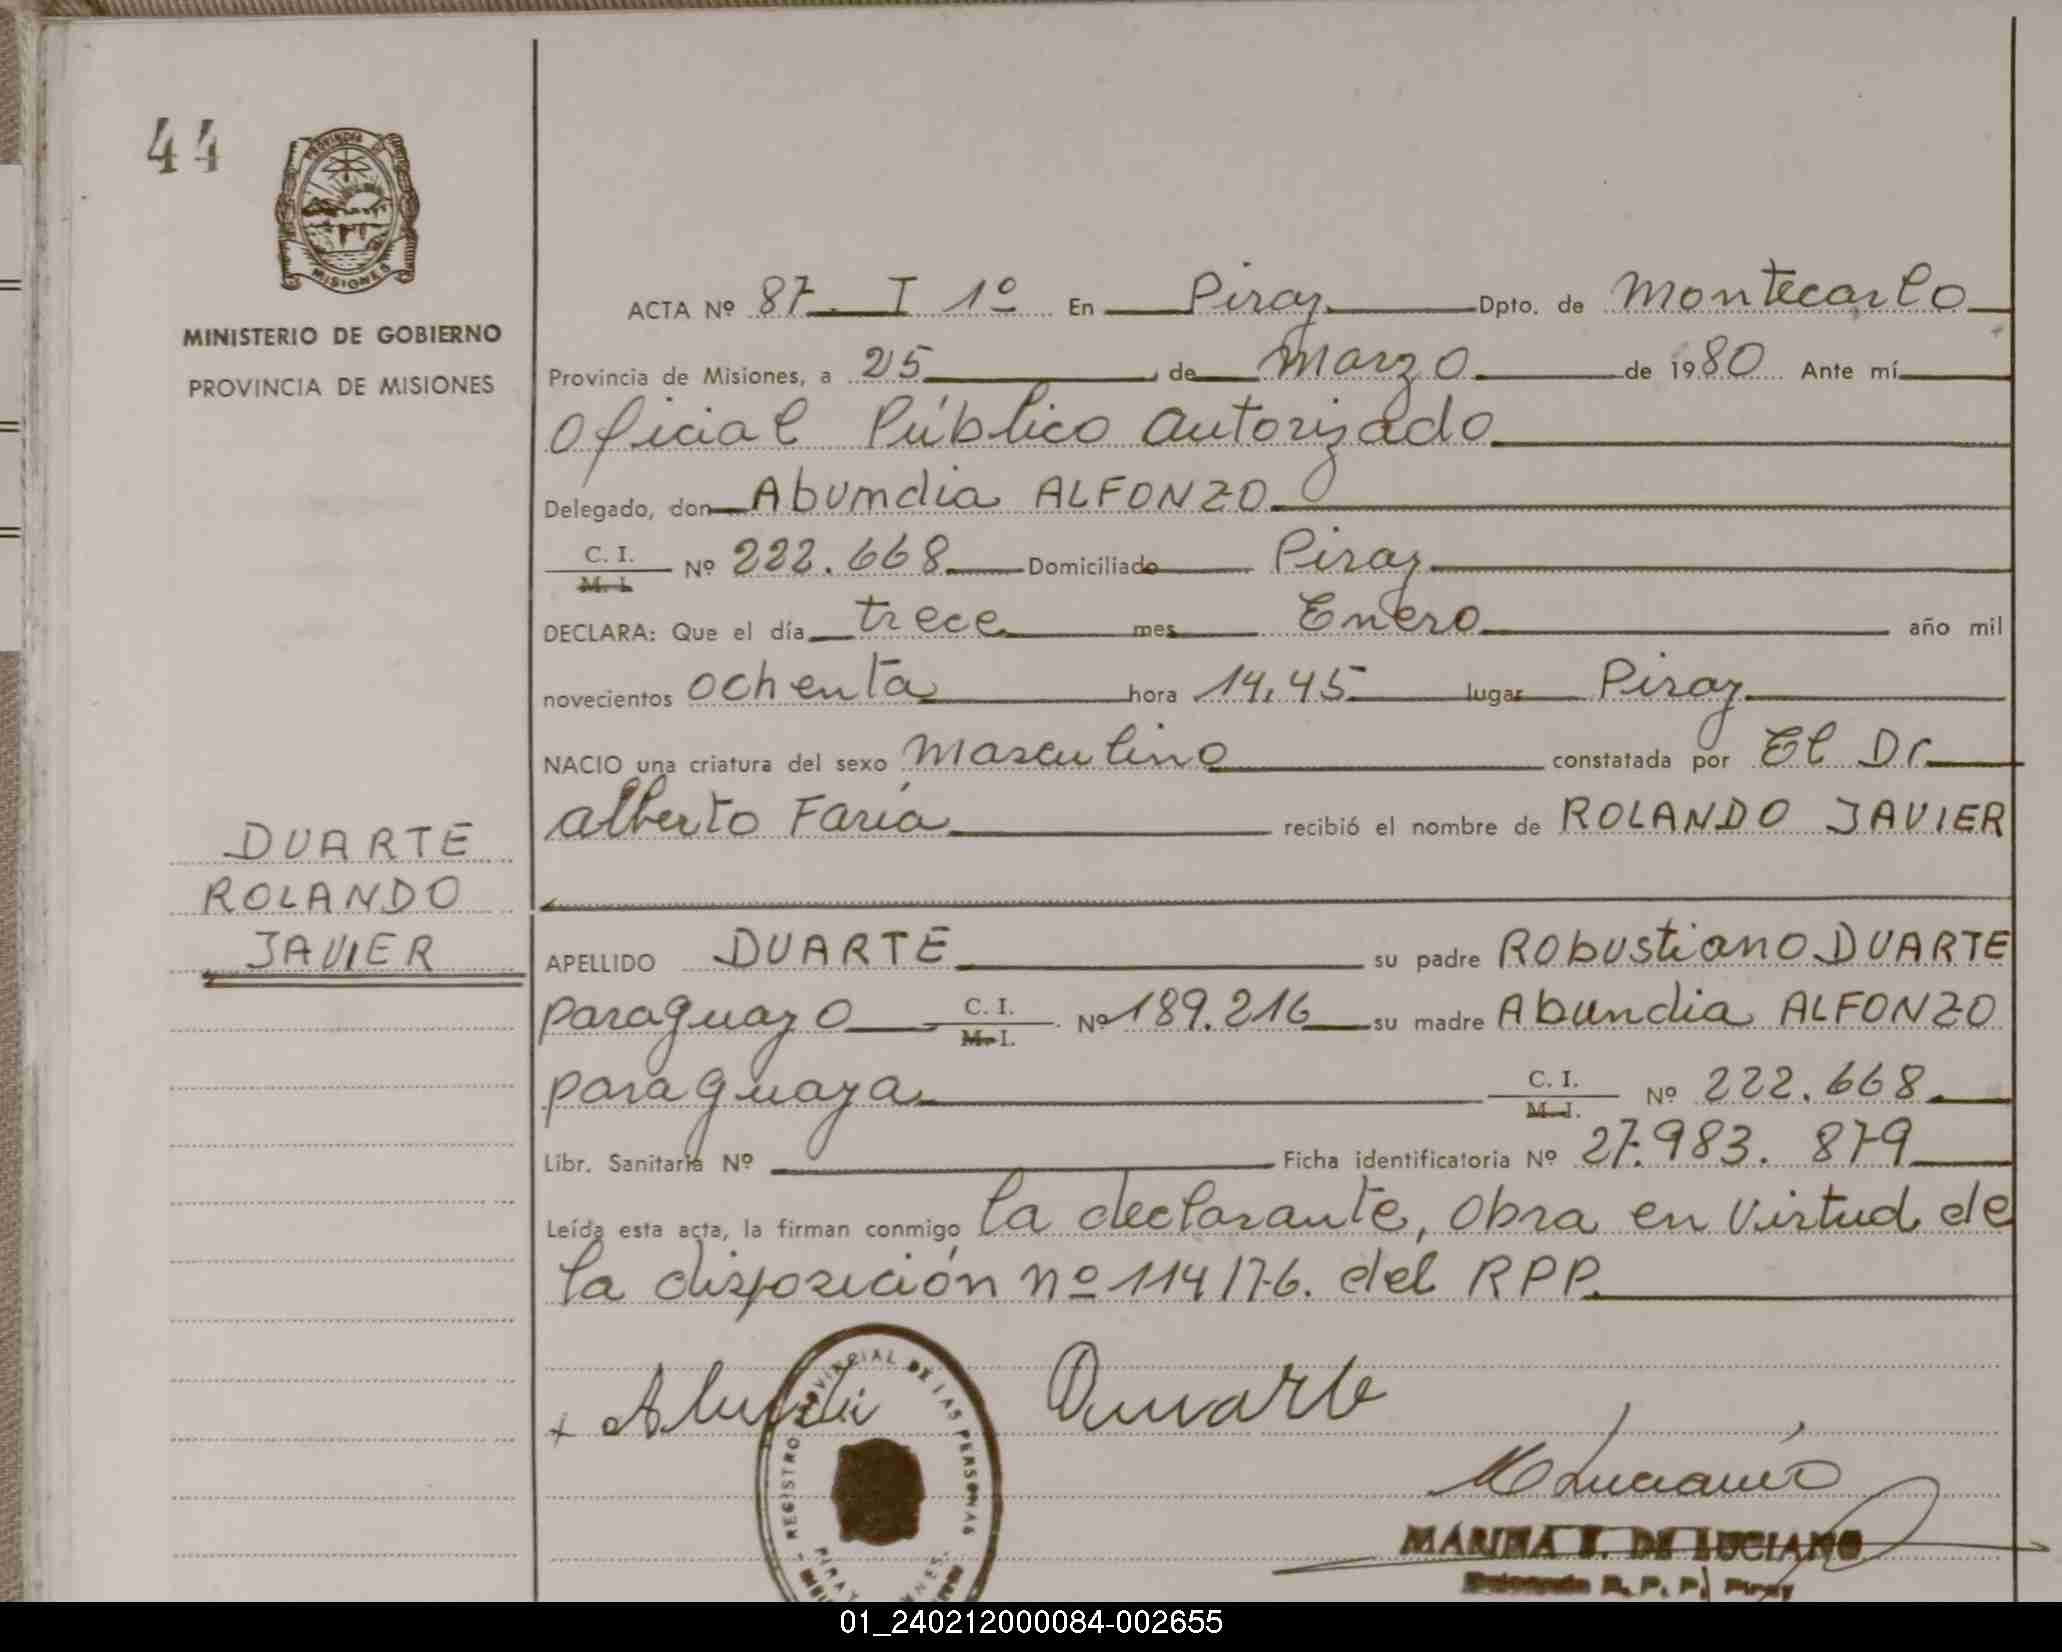 44
PROVINCIA
MISIONES
MINISTERIO DE GOBIERNO
PROVINCIA DE MISIONES
DUARTE
ROLANDO
JAVIER
ACTA Nº 87 I 1º En Piray Dpto. de Montecarlo
Provincia de Misiones, a 25 de Marzo de 1980 Ante mí
Oficial Público autorizado
Delegado, don Abumdia ALFONZO
C. I.
M. I. Nº 222.668 Domiciliado Piray
DECLARA: Que el día trece mes Enero año mil
novecientos ochenta hora 14,45 lugar Piray
NACIO una criatura del sexo masculino constatada por El Dr
alberto Faría recibió el nombre de ROLANDO JAVIER
APELLIDO DUARTE su padre RObustiano DUARTE
paraguayo C. I. M. I. Nº 189.216 su madre Abundia ALFONZO
paraguaya C. I. M. I. Nº 222.668
Libr. Sanitaria Nº Ficha identificatoria Nº 27.983.879
Leída esta acta, la firman conmigo la declarante, Obra en virtud de
la disposición nº 114/76. del RPP.
REGISTRO PROVINCIAL DE LAS PERSONAS
PIRAY
Duuarte
MARINA E. DE LUCIANO
R. P. P. Piray
01_240212000084-002655